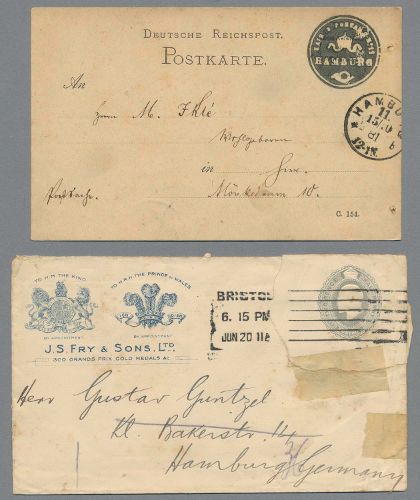 DEUTSCHE REICHSPOST.
POSTKARTE.
HAMBURG
An
Herrn M. Iklé
Wohlgeboren
in Hier
Postsache.
Mönkedamm 10.
C. 154.
TO H.M. THE KING
TO H.R.H. THE PRINCE OF WALES
BY APPOINTMENT
BY APPOINTMENT
J.S. FRY & SONS, LTD.
300 GRANDS PRIX GOLD MEDALS &c.
BRISTOL
6. 15 PM
JUN 20 11
Herr Gustav Güntzel
Kl. Bakerstr. 14
Hamburg Germany